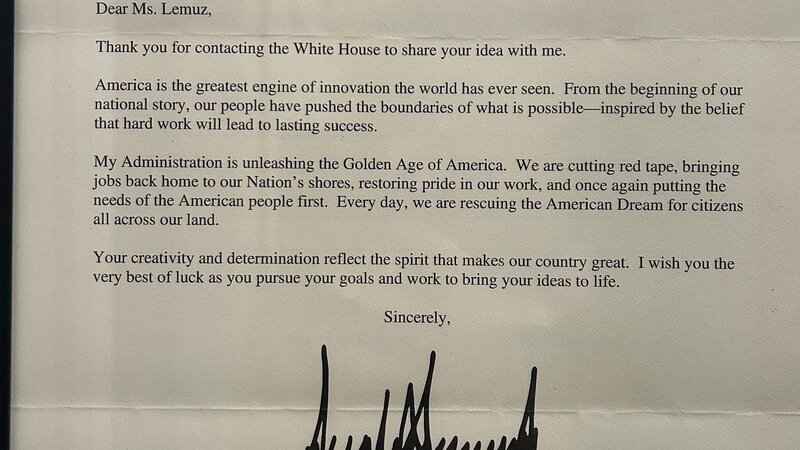 Dear Ms. Lemuz,
Thank you for contacting the White House to share your idea with me.
America is the greatest engine of innovation the world has ever seen.  From the beginning of our
national story, our people have pushed the boundaries of what is possible—inspired by the belief
that hard work will lead to lasting success.
My Administration is unleashing the Golden Age of America.  We are cutting red tape, bringing
jobs back home to our Nation’s shores, restoring pride in our work, and once again putting the
needs of the American people first.  Every day, we are rescuing the American Dream for citizens
all across our land.
Your creativity and determination reflect the spirit that makes our country great.  I wish you the
very best of luck as you pursue your goals and work to bring your ideas to life.
Sincerely,